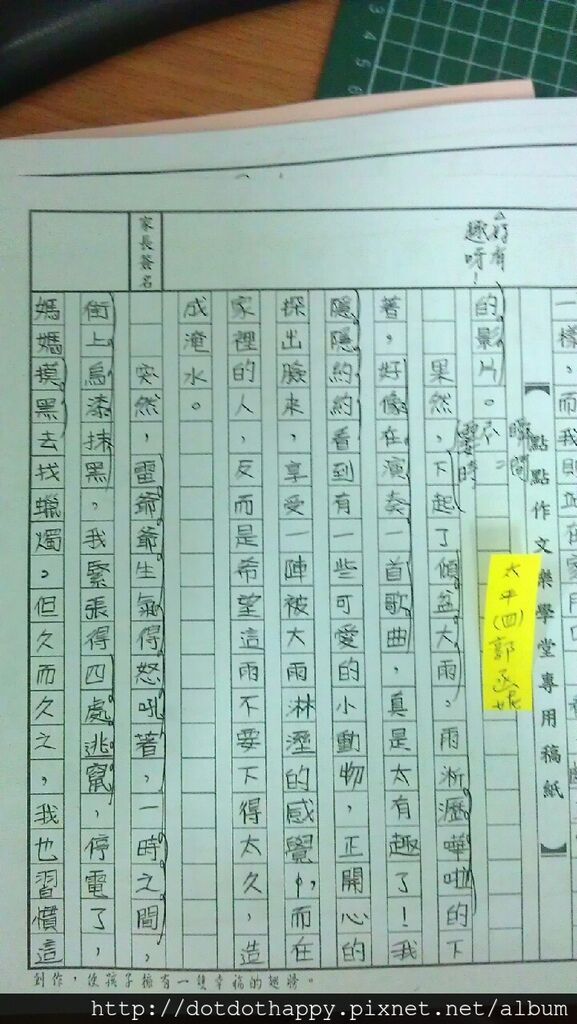 一樣，而我則正在
點點作文樂學堂專用稿紙
太平(四)郭丞
的影片。
好有趣呀！
瞬間
霎時
果然，下起了傾盆大雨，雨淅瀝嘩啦的下
著，好像在演奏一首歌曲，真是太有趣了！我
隱隱約約看到有一些可愛的小動物，正開心的
探出臉來，享受一陣被大雨淋溼的感覺，而在
家裡的人，反而是希望這雨不要下得太久，造
成淹水。
家長簽名
突然，雷爺爺生氣得怒吼著，一時之間，
街上烏漆抹黑，我緊張得四處逃竄，停電了，
媽媽摸黑去找蠟燭，但久而久之，我也習慣這
創作，使孩子擁有一雙幸福的翅膀。
http://dotdothappy.pixnet.net/album